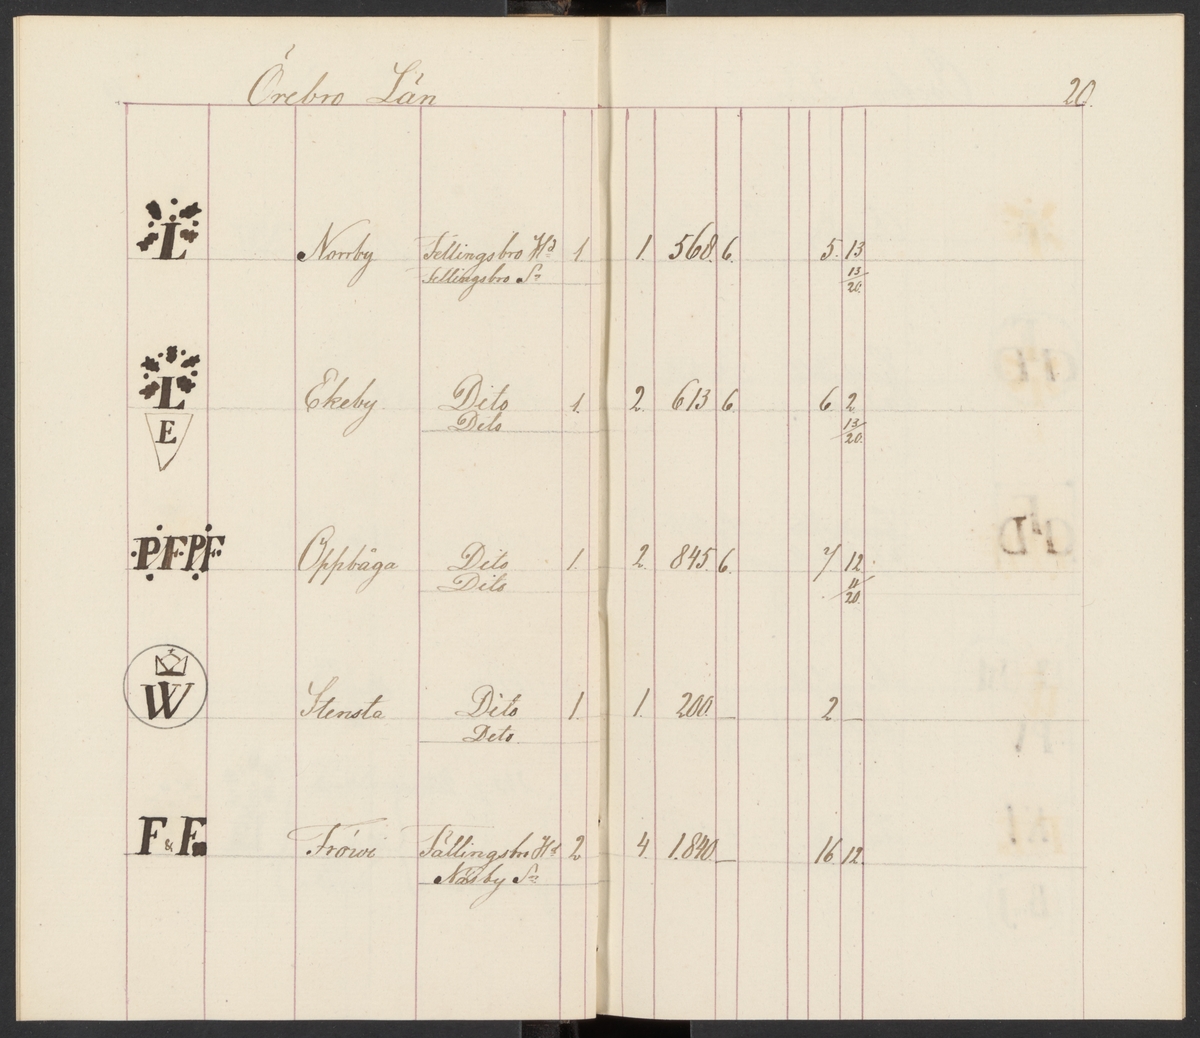 Örebro Län 20.
L Norrby Fellingsbro Hd 1 1. 568. 6. 5. 13
Fellingsbro Sn 13/20.
L Ekeby Dito 1. 2. 613 6. 6 2
E Dito 13/20.
PFPF Oppbåga Dito 1. 2. 845. 6. 7 12
Dito 11/20.
W Stensta Dito 1. 1. 200. — 2 —
Dito
F & F Fröwi Fällingsbro Hd 2 4. 1.840. — 16 12
Näsby Sn